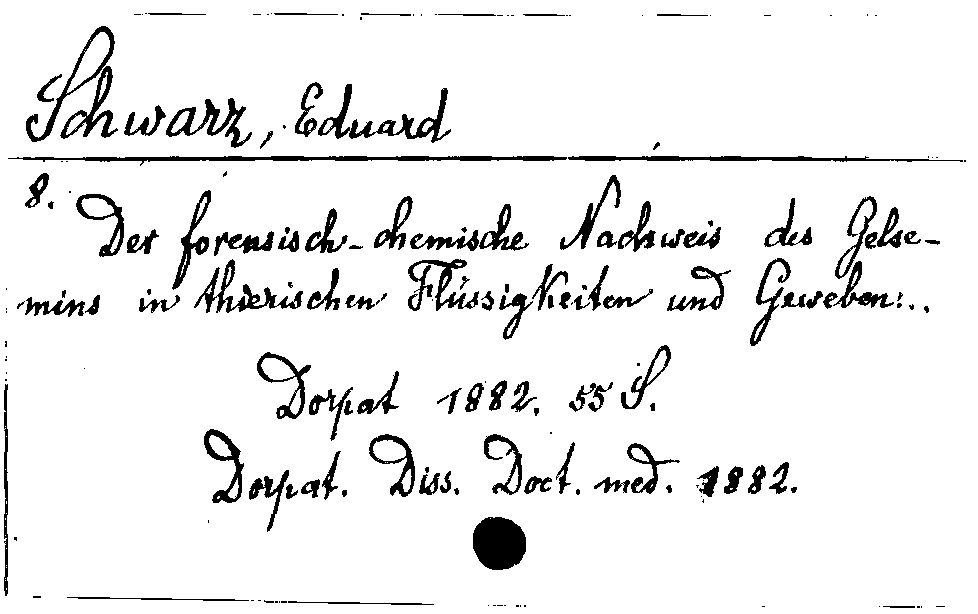 Schwarz, Eduard
8.
Der forensisch-chemische Nachweis des Gelse-
mins in thierischen Flüssigkeiten und Geweben...
Dorpat 1882. 55 S.
Dorpat. Diss. Doct. med. 1882.